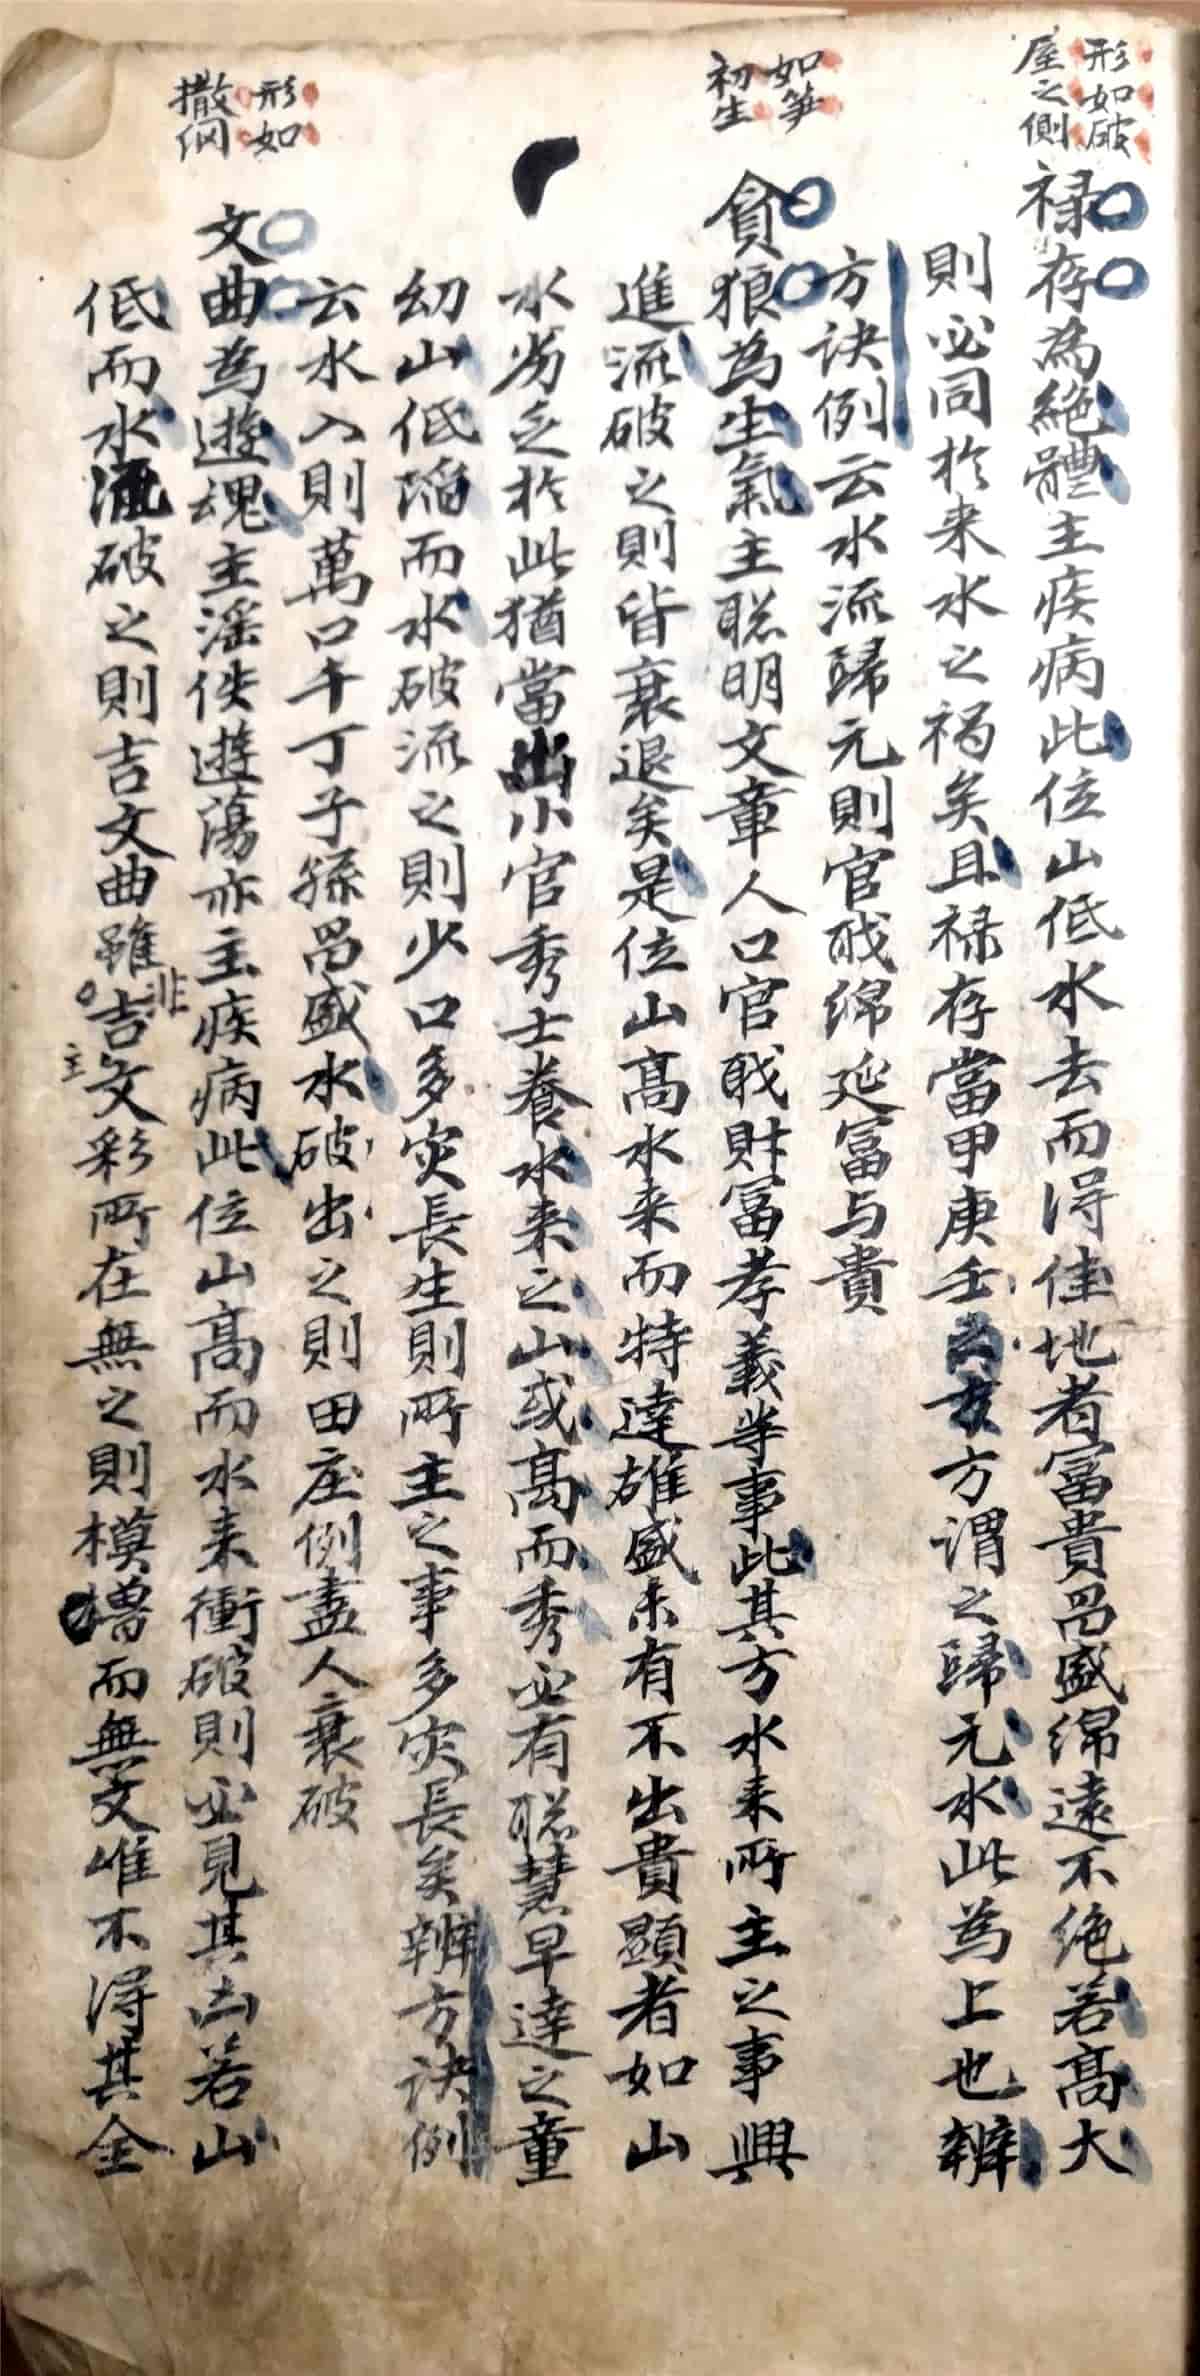 形如破
屋之側
禄存為絶體主疾病此位山低水去而得佳地者富貴昌盛綿遠不絶若高大
則必同於来水之禍矣且禄存當甲庚壬方謂之歸元水此為上也辨
方訣例云水流歸元則官戝綿延富与貴
如笋
初生
貪狼為生氣主聡明文章人口官戝財冨孝義等事此其方水来所主之事興
進流破之則皆衰退矣是位山高水来而特達雄盛未有不出貴顯者如山
水劣乏於此猶當出小官秀士養水来之山或高而秀必有聡慧早達之童
幼山低陷而水破流之則少口多灾長生則所主之事多灾長矣辨方訣例
云水入則萬口千丁子孫昌盛水破出之則田庄例盡人衰破
形如
撒网
文曲為遊魂主滛佚遊蕩亦主疾病此位山高而水来衝破則必見其凶若山
低而水流破之則吉文曲雖非吉主文彩所在無之則模摸而無文唯不得其全